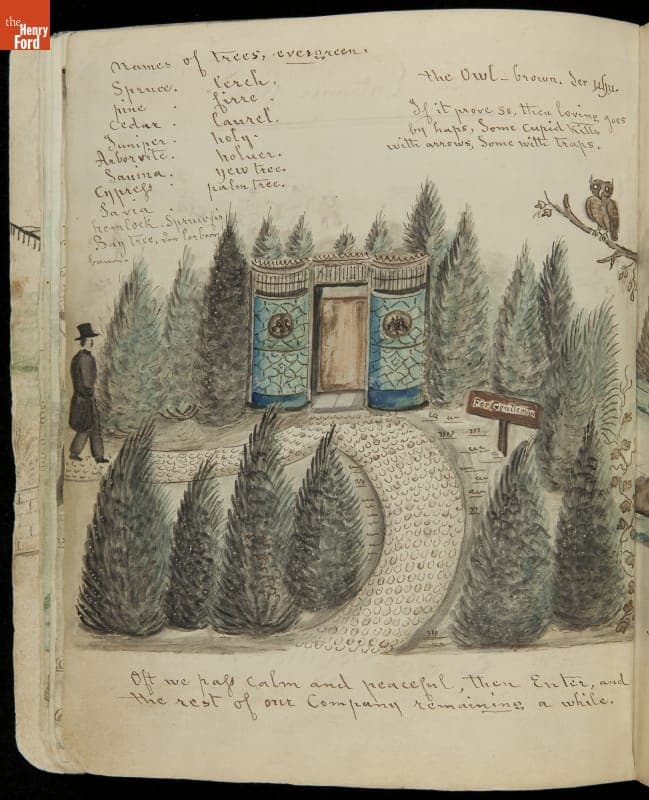 the
Henry
Ford
Names of trees, evergreen.
Spruce.
pine .
Cedar .
Juniper.
Arborvite.
Sauina.
Cypress .
Savia .
hemlock. Spruce fir
Bay tree,
Lerch.
firre.
Laurel.
holy.
holuer.
yew tree.
palm tree.
the Owl – brown. der uhu.
If it prove so, then loving goes
by haps, Some Cupid kills
with arrows, Some with traps.
For Gentlemen
Oft we pass calm and peaceful, then Enter, and
the rest of our Company remaining a while.